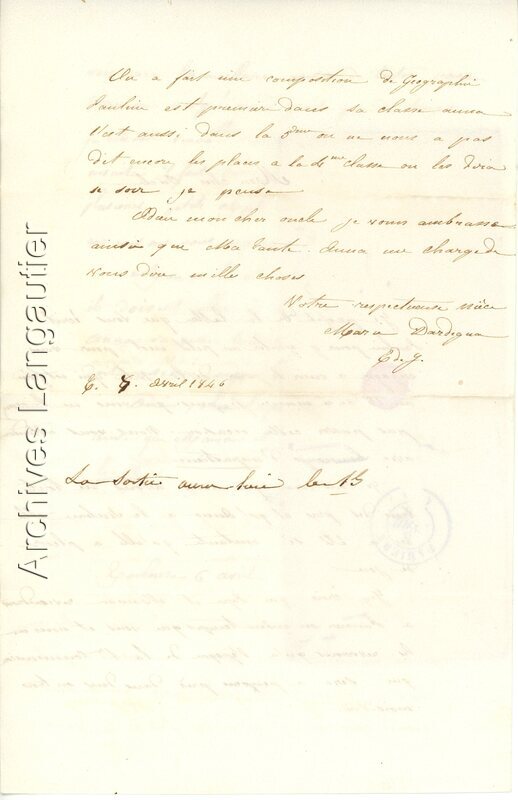 On a fait une composition de Geographie
Pauline est premier dans sa classe anna
l'est aussi dans la 3eme on ne nous a pas
dit encore les places a la 4me classe on les dira
se soir je pense
Adieu mon cher oncle je vous ambrasse
ainsin que Ma tante. Anna me charge de
vous dire mille choses
Votre respectueuse nièce
Maria Dardignac
E d. J.
avril 1846
La sortie aura lieu le 15
Archives Langautier